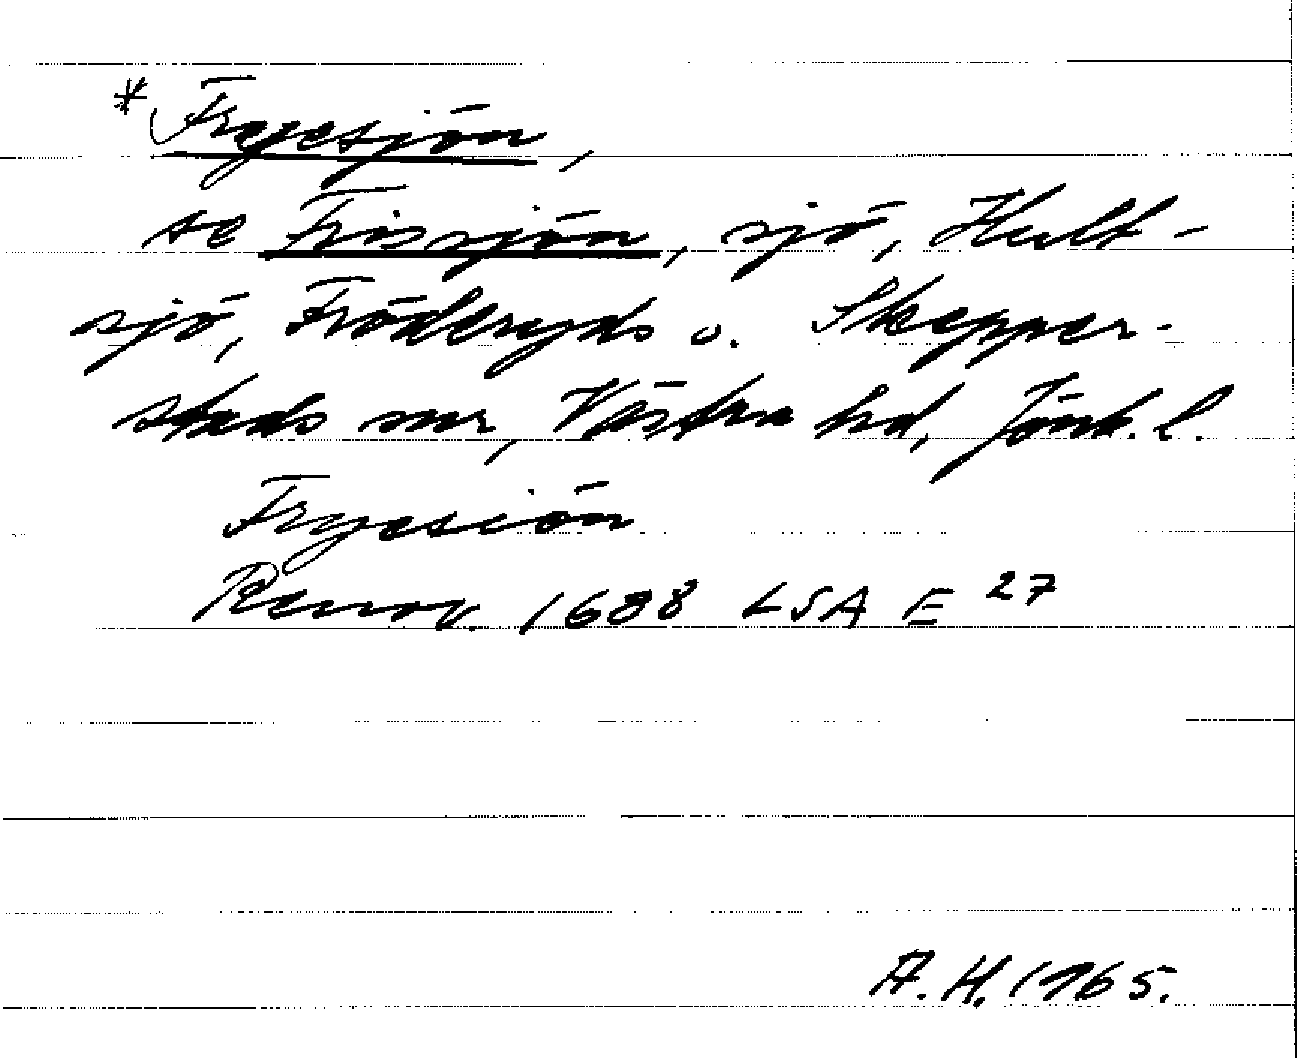 *Fryesjön,
se Frissjön, sjö, Hult-
sjö, Fröderyds o. Skepper-
stads snr, Västra hd, Jönk. l.
Fryesiön
Renov. 1688 LSA E 27
A.H. 1965.